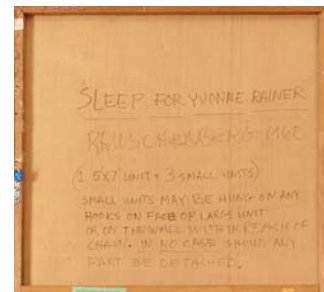 SLEEP FOR YVONNE RAINER
RAUSCHENBERG 1965
(1 5'X7' UNIT + 3 SMALL UNITS)
SMALL UNITS MAY BE HUNG ON ANY
HOOKS ON FACE OF LARGE UNIT
OR ON THE WALL WITH IN REACH OF
CHAIN. IN NO CASE SHOUD ANY
PART BE DETACHED.